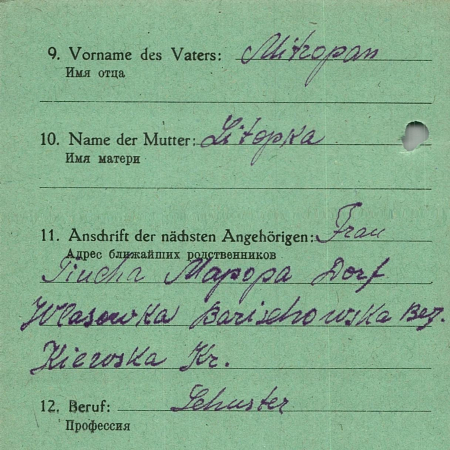 9. Vorname des Vaters: Mitropan
Имя отца
10. Name der Mutter: Litopka
Имя матери
11. Anschrift der nächsten Angehörigen: Frau
Адрес ближайших родственников
Mapopa Dorf
Wlasowka Barischowska Bez.
Kiewska Kr.
12. Beruf: Schuster
Профессия